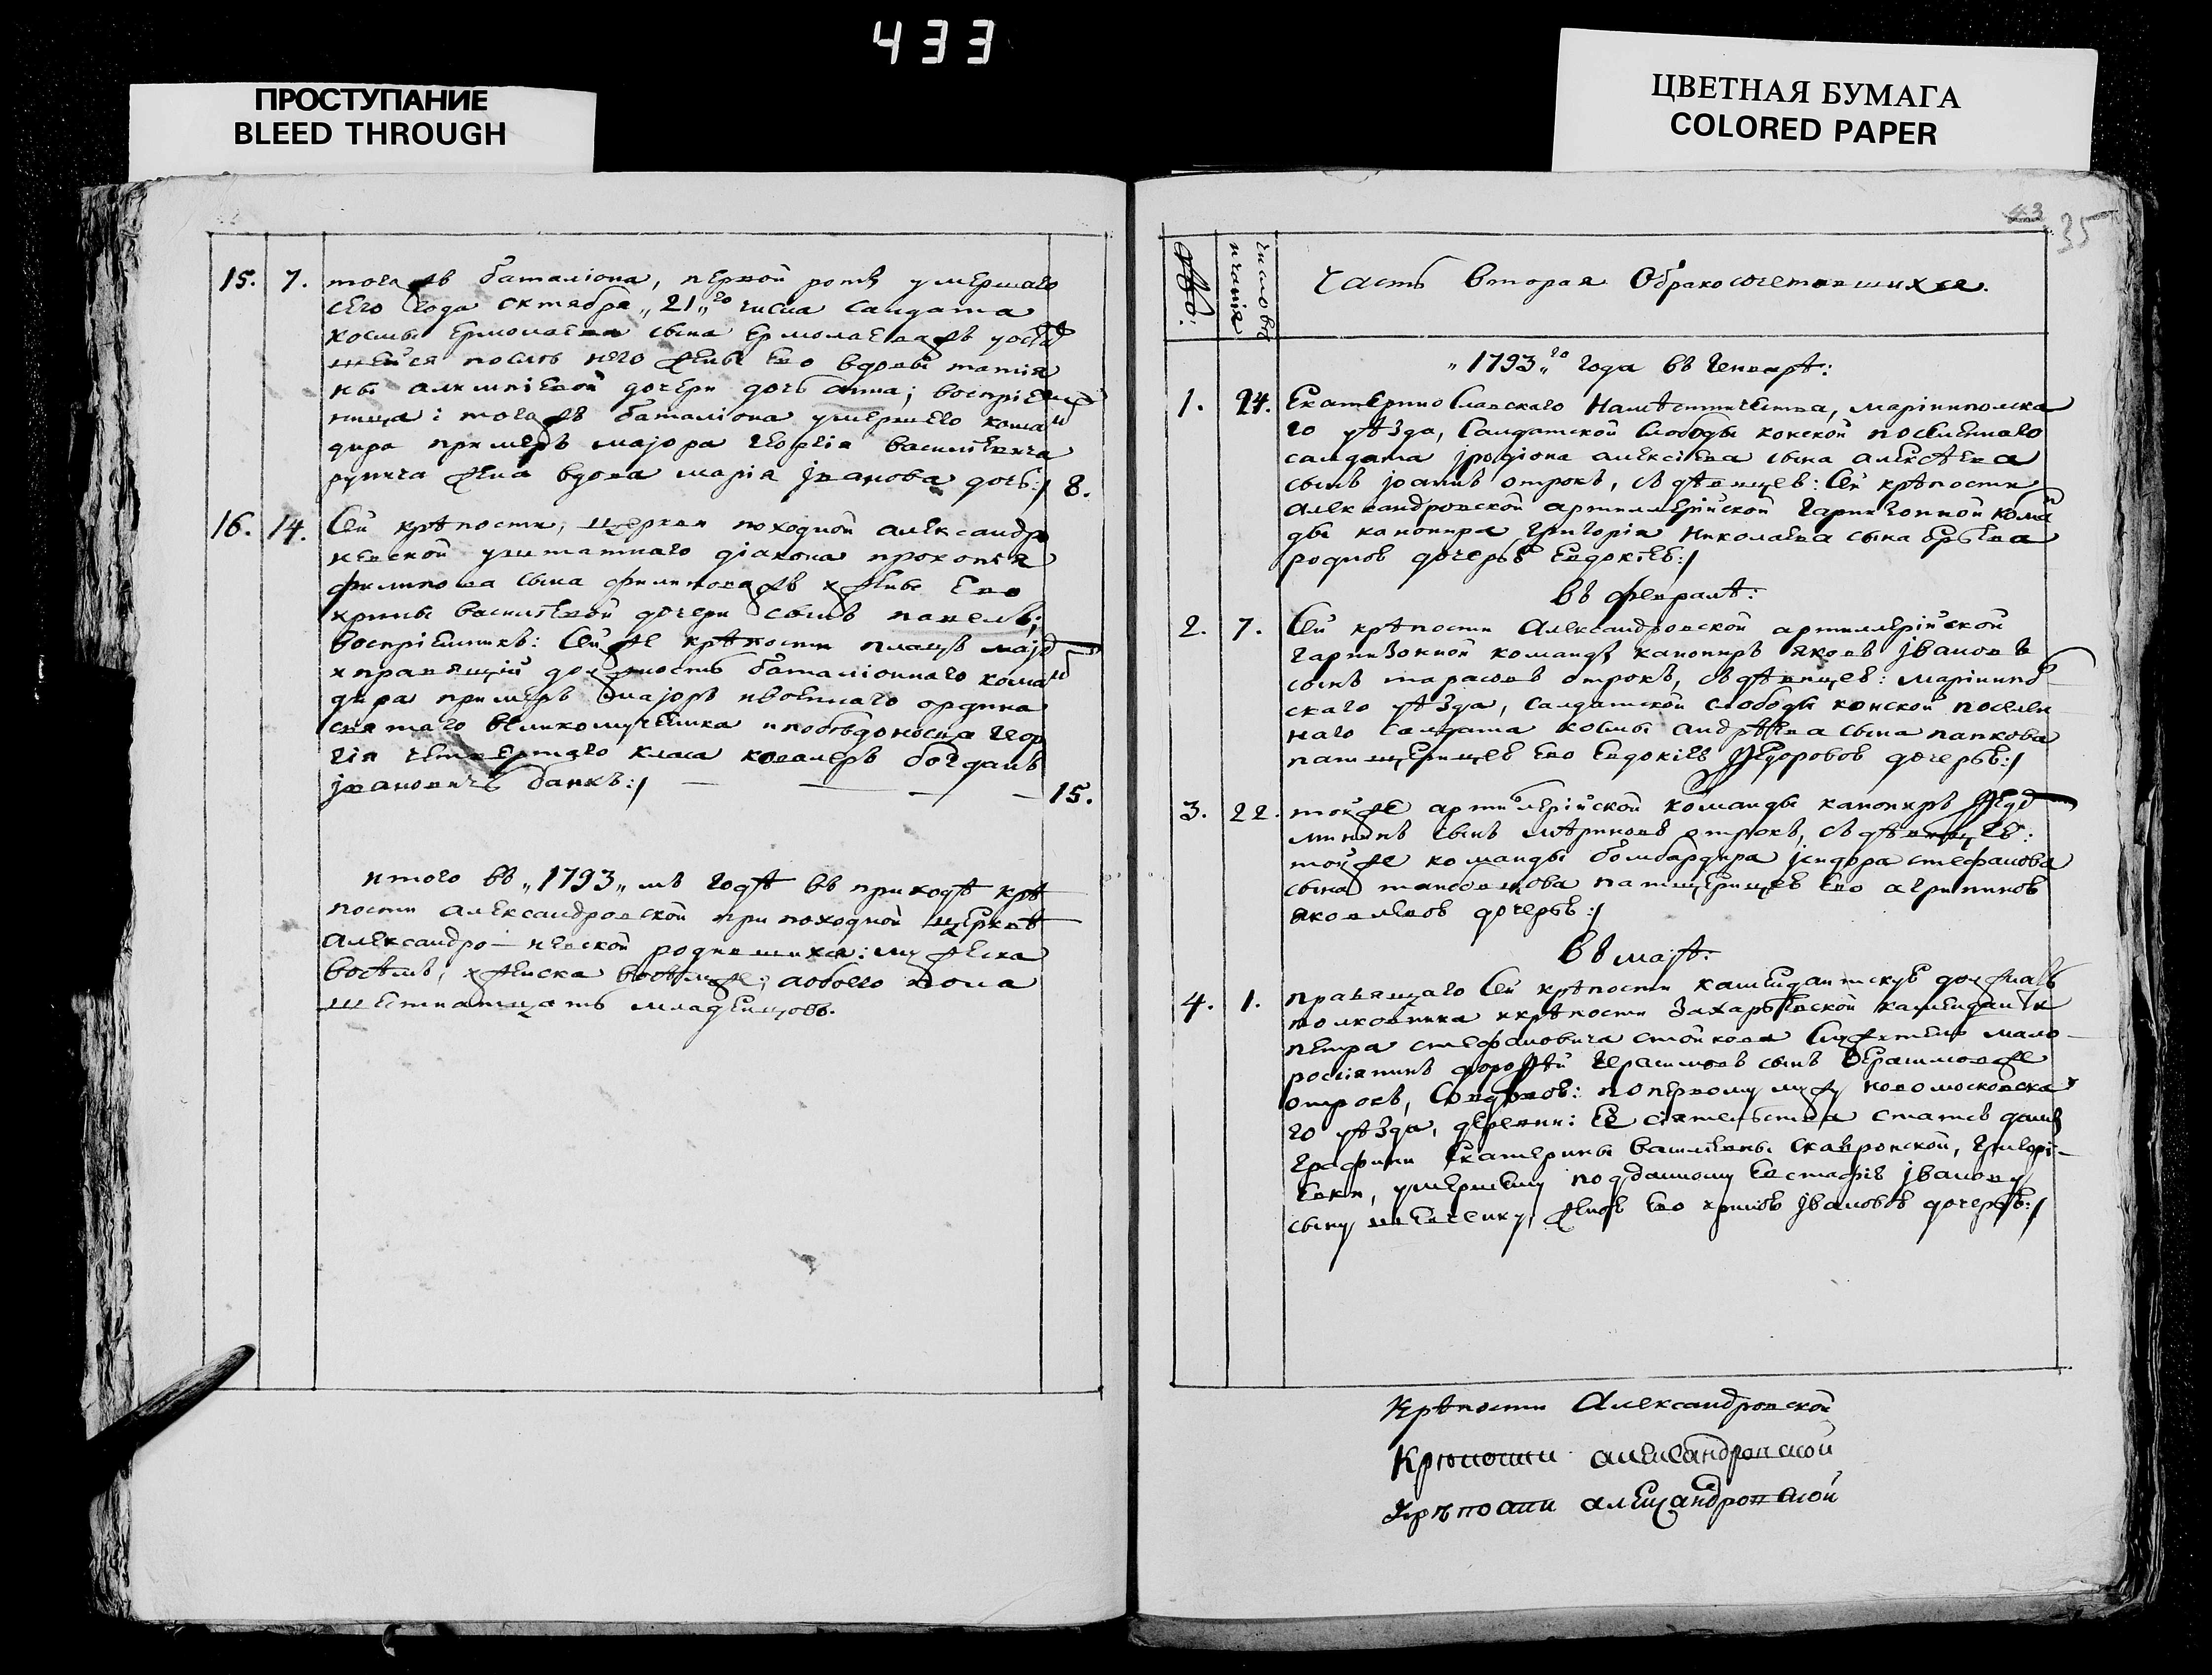 433
ПРОСТУПАНИЕ
BLEED THROUGH
ЦВЕТНАЯ БУМАГА
COLORED PAPER
15. 7. тогажъ баталіона, первой роты умершаго
сего года октября „21„го числа салдата
космы ермолаева сына ермолаеважъ
послѣ него жены ево вдовы татія
ны дочери дочь анна; воспріем
ница: тогажъ баталіона умершего коман
дира примеръ маіора георгія василіевича
жена вдова марія јванова дочь:/ 8.
16. 14. Сей крѣпости, церкви походной александро
невской діакона прокопія
филипова сына филиповажъ жены ево
ирины василіевой дочери сынъ павелъ;
воспріемникъ: Сейже крѣпости плацъ маіоръ
и правящій должность баталіоннаго коман
дира примеръ маіоръ ивоеннаго ордина
святаго великомученика ипобѣдоносца геор
гія четвертаго класа коваліеръ богданъ
јвановичъ банкъ:/ 15.
итого въ „1793„мъ годѣ въ приходѣ крѣ
пости александровской при походной церквѣ
александро-невской родившихся: мужеска
восѣмь, и женска восѣмже; аобоего пола
шестнатцать младенцовъ.
43
35
Часть вторая Обракосочетавшихся.
„1793„го года въ генварѣ:
1. 24. Екатеринославскаго Намѣстничества, маріиполска
го уѣзда, Салдатской слободы конской поселеннаго
салдата јродіона алексіева сына алексѣева
сынъ јоаннъ отрокъ, съ дѣвицев: Сей крѣпости
александровской артиллерійской гарнизонной коман
ды канонира григорія николаева сына
родной дочерью евдокіев:/
въ февралѣ:
2. 7. Сей крѣпости Александровской артиллерійской
гарнизонной команды канониръ яковъ јвановъ
сынъ тарасовъ отрокъ, съ дѣвицев: маріипол
скаго уѣзда, салдатской слободы конской поселен
наго салдата космы андрѣева сына папкова
патчерицев ево евдокіев Ѳедоровов дочерью:/
3. 22. тойже артиллерійской команды канониръ Ѳедоръ
сынъ отрокъ, съ дѣвицев:
тойже команды бомбардира јсидора стефанова
сына патчерицев ево агрипинов
яковлевов дочерью:/
въ маіѣ:
4. 1. правящаго Сей крѣпости камендантскую должность
полковника икрѣпости Захарьевской камендантa
петра стефановича стойкова служитель мало
росіянинъ дороѳѣй герасимовъ сынъ герасимовже
отрокъ, Совдовов: попервому мужу новомосковска
го уѣзда, деревни: Ея сіятельства статсъ дамы
графини екатерины василіевны скавронской, григорі-
евки, умершему подданному евстафію јванову
сыну шевченку, женов ево иринов јвановов дочерью:/
Крѣпости Александровской
Крѣпости александровской
Крѣпости александровской